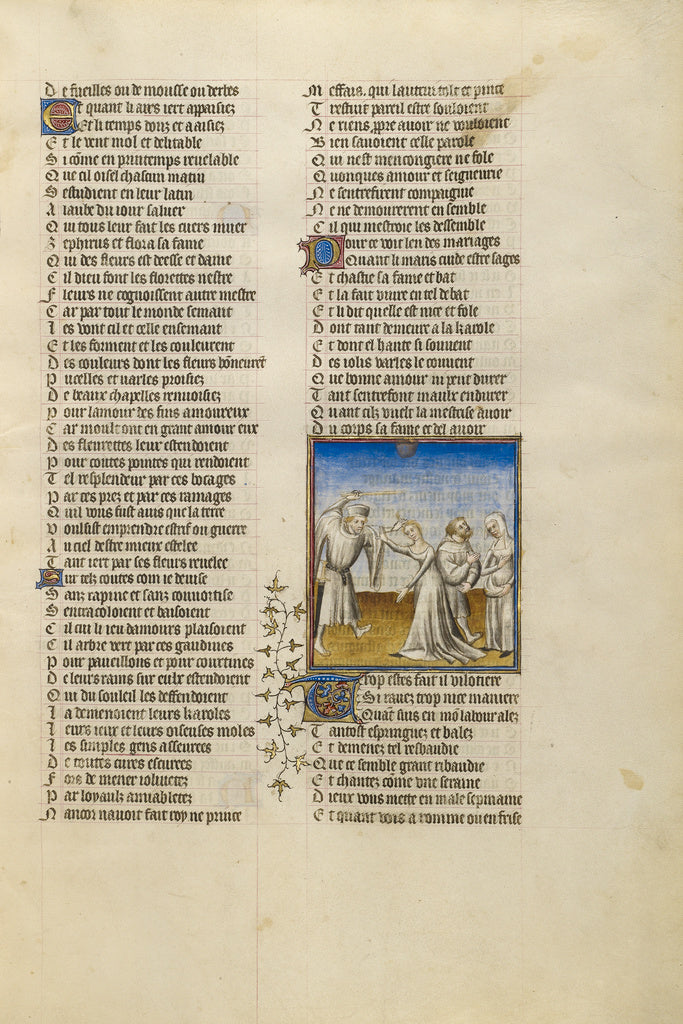 De fueilles ou de mousse ou derbes
Et quant li aires iert appaisiez
Et li temps douz et aaisiez
Et le vent mol et delitable
Si cõme en printemps ieuelable
Que cil oisel chascun matin
Sestudient en leur latin
A laube du iour saluer
Qui tous leur fait les cuers muer
Zephirus et flora sa fame
Qui des fleurs est deesse et dame
Cil dieu font les florettes nestre
Fleurs ne cognoissent autre mestre
Car par tout le monde semant
Les vont cil et celle ensemant
Et les forment et les couleurent
Des couleurs dont les fleurs hõneurent
Pucelles et varles proisiez
De beaux chapelles renuoisiez
Pour lamour des fins amoureux
Car moult ont en grant amour eux
Des fleurettes leur estendoient
Pour coutes pointes qui rendoient
Tel resplendeur par ces bocages
Par ces prez et par ces ramages
Quil vous fust auis que la terre
Voulsist emprendre estrif ou guerre
Au ciel destre mieux estelee
Tant iert par ses fleurs reuelee
Sur telz coutes com ie deuise
Sanz rapine et sanz conuoitise
Sentracoloient et baisoient
Cil cui li ieu damours plaisoient
Cil arbre vert par ces gaudines
Pour paueillons et pour courtines
De leurs rains sur eulx estendoient
Qui du souleil les deffendoient
La demenoient leurs karoles
Leurs ieux et leurs oiseuses moles
Les simples gens asseurees
De toutes cures escurees
Fors de mener ioliuetez
Par loyaulz amiabletez
Nancor nauoit fait roy ne prince
Meffais, qui lautrui tolt et pince
Trestuit pareil estre souloient
Ne riens ppre auoir ne vouloient
Bien sauoient celle parole
Qui nest mencongiere ne fole
Quonques amour et seigneurie
Ne sentrefirent compaignie
Ne ne demourerent ensemble
Cil qui mestroie les dessemble
Pour ce voit len des mariages
Quant li maris cuide estre sages
Et chastie sa fame et bat
Et la fait viure en tel debat
Et li dit quelle est nice et fole
Dont tant demeure a la karole
Et dont el hante si souuent
Des iolis varles le couuent
Que bonne amour ni peut durer
Tant sentrefont maulx endurer
Quant cilz vuelt la mestrise auoir
Du corps sa fame et del auoir
Trop estes fait il vilotiere
Si rauez trop nice maniere
Quãt suis en mõ labour alez
Tantost espringuez et balez
Et demenez tel resbaudie
Que ce semble grant ribaudie
Et chantez cõme vne seraine
Dieux vous mette en male sepmaine
Et quant vois a romme ou en frise